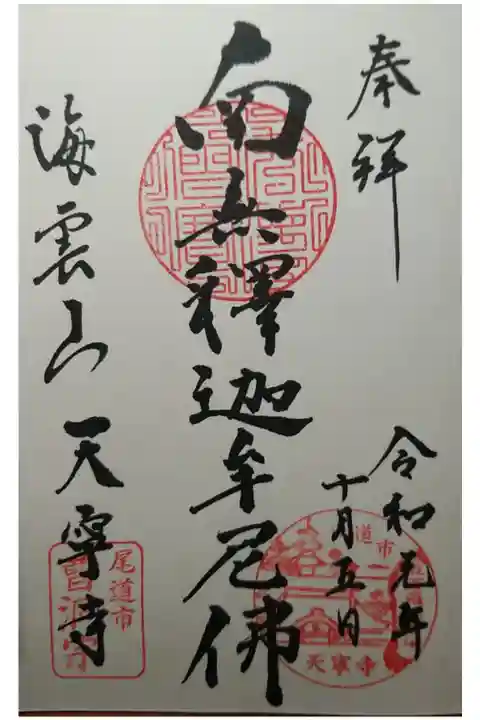 奉拝
令和元年
十月五日
南無釋迦牟尼佛
海雲山
天寧寺
尾道市
曹洞宗
道市
天寧寺